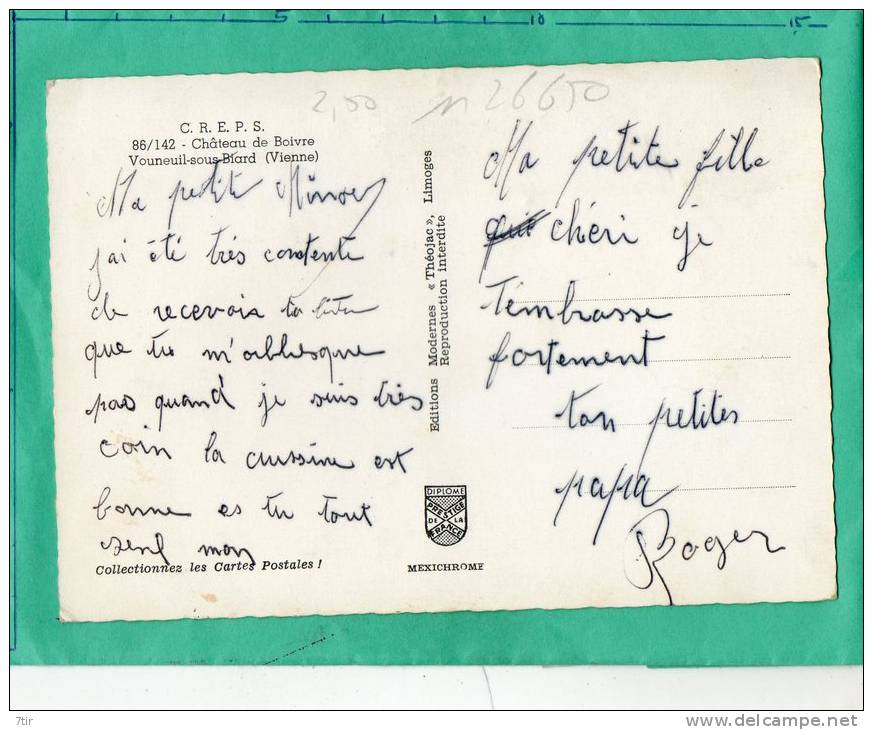 5 10 15
2,50
n 26650
C. R. E. P. S.
86/142 - Château de Boivre
Vouneuil-sous-Biard (Vienne)
Ma petite
j'ai été très contente
de recevoir ta
que tu
pas quand je suis très
coin la cuissine est
bonne es tu tout
seul mon
Collectionnez les Cartes Postales !
Editions Modernes « Théojac », Limoges
Reproduction interdite
DIPLOME
PRESTIGE
DE LA
FRANCE
MEXICHROME
Ma petite fille
chéri je
t'embrasse
fortement
ton petites
papa
Roger
7tir
delcampe.net